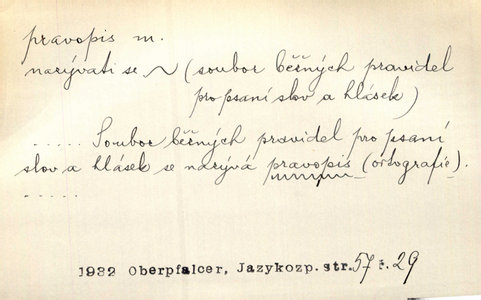 pravopis m.
nazývati se ~ (soubor běžných pravidel
pro psaní slov a hlásek)
..... Soubor běžných pravidel pro psaní
slov a hlásek se nazývá pravopis (ortografie).
.....
1932 Oberpfalcer, Jazykozp. str. 57 ř. 29